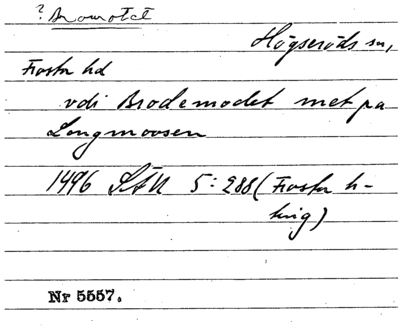 ? Bromotet
Högseröds sn,
Frosta hd
vdi Brodemodet met pa
Longmoosen
1496 SÄU 5:288 (Frosta h-
ting)
Nr 5557.